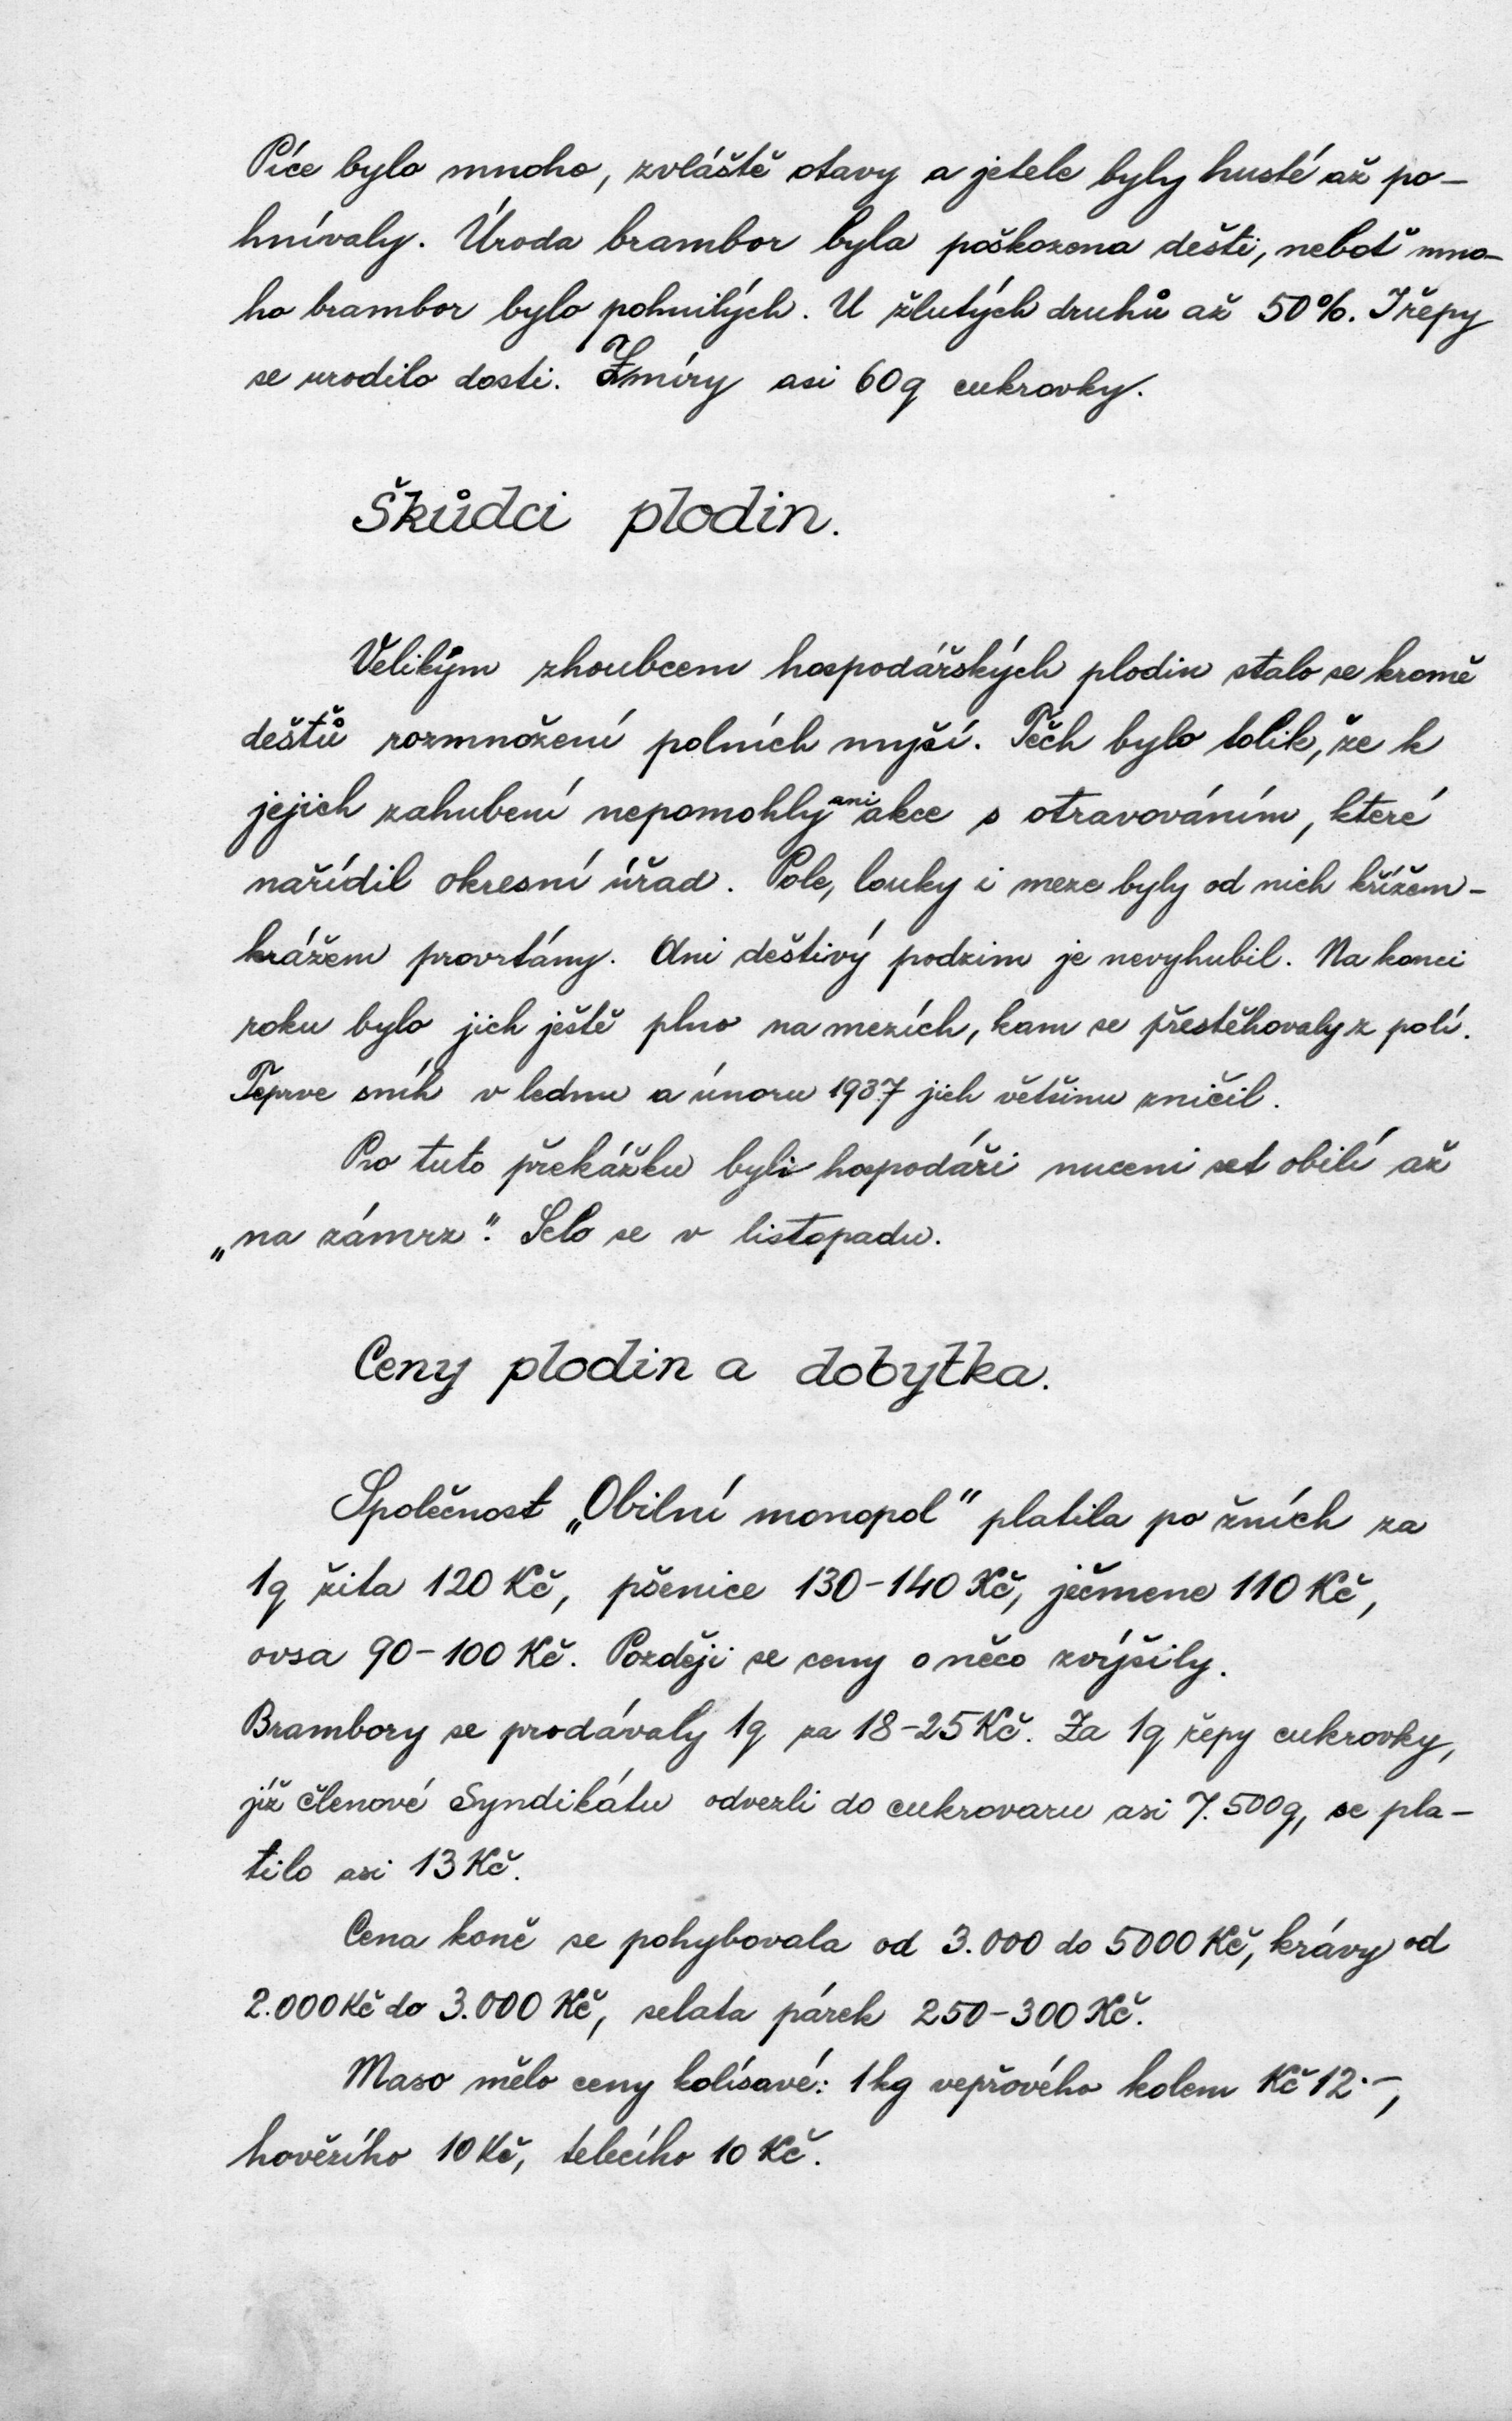 Píce bylo mnoho, zvláště otavy a jetele byly husté až po-
hnívaly. Úroda brambor byla poškozena dešti, neboť mno-
ho brambor bylo pohnilých. U žlutých druhů až 50%. I řepy
se urodilo dosti. Z míry asi 60 q cukrovky.
Škůdci plodin.
Velikým zhoubcem hospodářských plodin stalo se kromě
dešťů rozmnožení polních myší. Těch bylo tolik, že k
jejich zahubení nepomohly ani akce s otravováním, které
nařídil okresní úřad. Pole, louky i meze byly od nich křížem-
krážem provrtány. Ani deštivý podzim je nevyhubil. Na konci
roku bylo jich ještě plno na mezích, kam se přestěhovaly z polí.
Teprve sníh v lednu a únoru 1937 jich většinu zničil.
Pro tuto překážku byli hospodáři nuceni set obilí až
„na zámrz". Selo se v listopadu.
Ceny plodin a dobytka.
Společnost „Obilní monopol" platila po žních za
1q žita 120 Kč, pšenice 130-140 Kč, ječmene 110 Kč,
ovsa 90-100 Kč. Později se ceny o něco zvýšily.
Brambory se prodávaly 1q za 18-25 Kč. Za 1q řepy cukrovky,
jíž členové Syndikátu odvezli do cukrovaru asi 7.500q, se pla-
tilo asi 13 Kč.
Cena koně se pohybovala od 3.000 do 5000 Kč, krávy od
2.000 Kč do 3.000 Kč, selata párek 250-300 Kč.
Maso mělo ceny kolísavé: 1 kg vepřového kolem Kč 12·-,
hovězího 10 Kč, telecího 10 Kč.